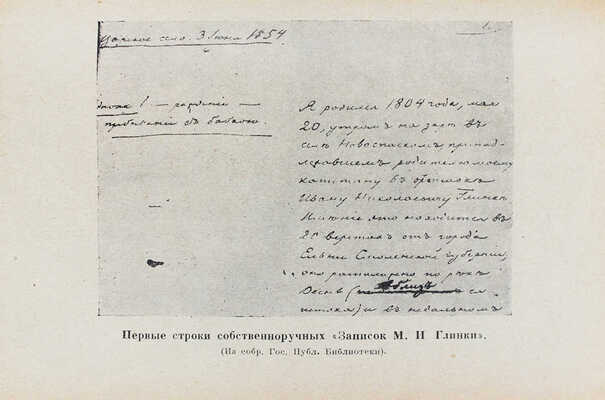 Царское село. 3 Июня 1854
Я родился 1804 года, мая
20, утромъ на зарѣ въ
селѣ Новоспаскомъ, принад-
лежавшемъ родителю моему
капитану въ отставкѣ
Ивану Николаевичу Глинкѣ
Имѣние это находится въ
20 верстахъ отъ города
Ельни Смоленской губернии,
оно расположено по рѣкѣ
Деснѣ ( близъ ея
истока) и въ небольшомъ
Первые строки собственноручных «Записок М. И Глинки».
(Из собр. Гос. Публ. Библиотеки).